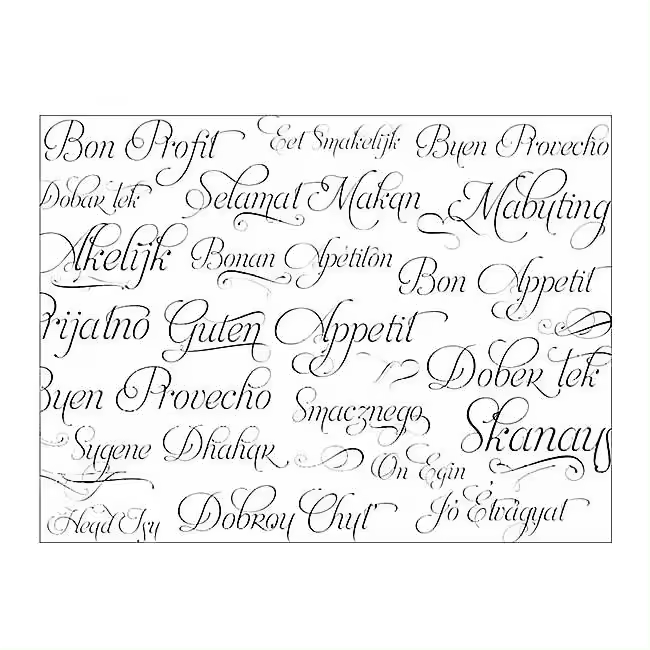 Bon Profit Eet Smakelijk Buen Provecho
Dobar tek Selamat Makan Mabuting
Akelijk Bonan Apétitôn Bon Appetit
rijatno Guten Appetit
Buen Provecho Dober tek
Smacznego Skanaus
Sygene Dhahar On Egin
Dobrou Chuť Jó Étvágyat